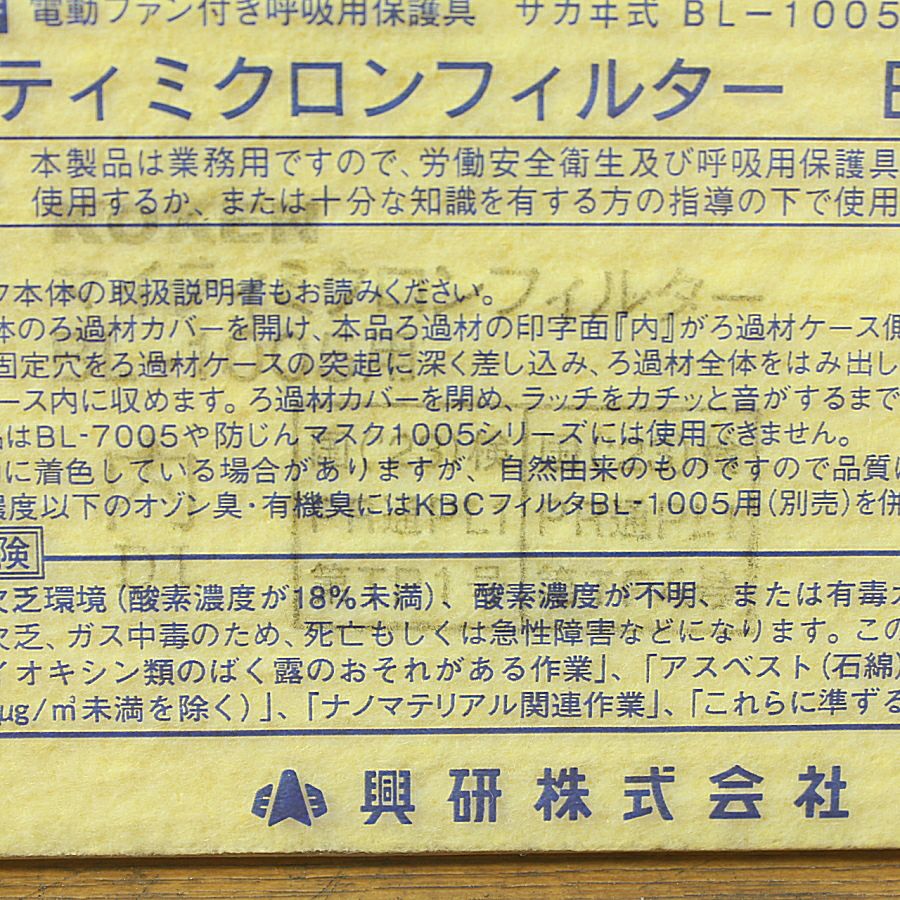 電動ファン付き呼吸用保護具 サカヰ式 BL-1005
ティミクロンフィルター
本製品は業務用ですので、労働安全衛生及び呼吸用保護具
使用するか、または十分な知識を有する方の指導の下で使用
KOKEN
マイティミクロンフィルター
ク本体の取扱説明書もお読みください。
体のろ過材カバーを開け、本品ろ過材の印字面『内』がろ過材ケース側
固定穴をろ過材ケースの突起に深く差し込み、ろ過材全体をはみ出し
ース内に収めます。ろ過材カバーを閉め、ラッチをカチッと音がするまで
品はBL-7005や防じんマスク1005シリーズには使用できません。
に着色している場合がありますが、自然由来のものですので品質に
濃度以下のオゾン臭・有機臭にはKBCフィルタBL-1005用(別売)を併
内
険
欠乏環境(酸素濃度が18%未満)、酸素濃度が不明、または有毒
欠乏、ガス中毒のため、死亡もしくは急性障害などになります。この
イオキシン類のばく露のおそれがある作業」、「アスベスト(石綿)
μg/㎥未満を除く)」、「ナノマテリアル関連作業」、「これらに準ずる
興研株式会社